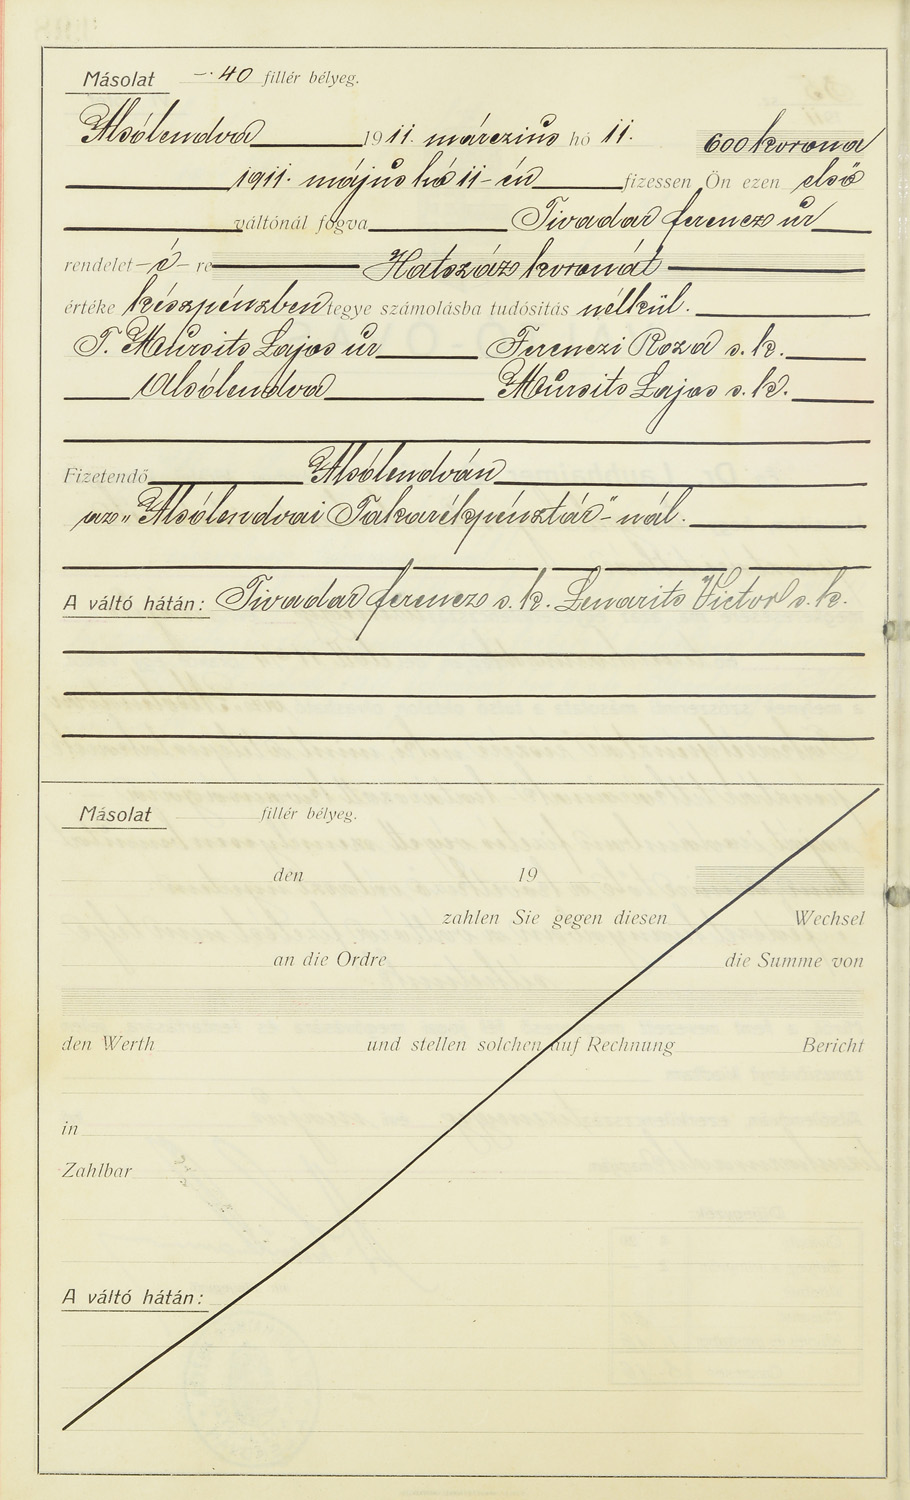 Másolat —·40 fillér bélyeg.
Alsólendva 1911. márczius hó 11. 600 korona
1911. május hó 11-én fizessen Ön ezen első
váltónál fogva Tivadar ferencz úr
rendelet -é- re Hatszáz koronát
értéke készpénzben tegye számolásba tudósitás nélkül.
T. Mursits Lajos úr Ferenczi Roza s. k.
Alsólendva Mursits Lajos s. k.
Fizetendő Alsólendván
az „Alsólendvai Takarékpénztár"-nál.
A váltó hátán: Tivadar ferencz s. k. Lenarits Victor s. k.
Másolat fillér bélyeg.
den 19
zahlen Sie gegen diesen Wechsel
an die Ordre die Summe von
den Werth und stellen solchen auf Rechnung Bericht
in
Zahlbar
A váltó hátán: